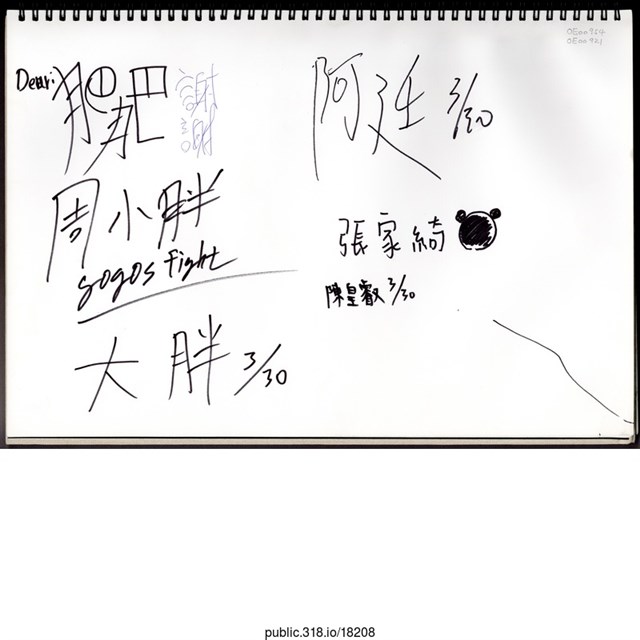 Dear:
肥肥
謝謝
周小胖
gogos fight
大胖 3/30
阿廷 3/30
張家綺
陳皇叡 3/30
public.318.io/18208